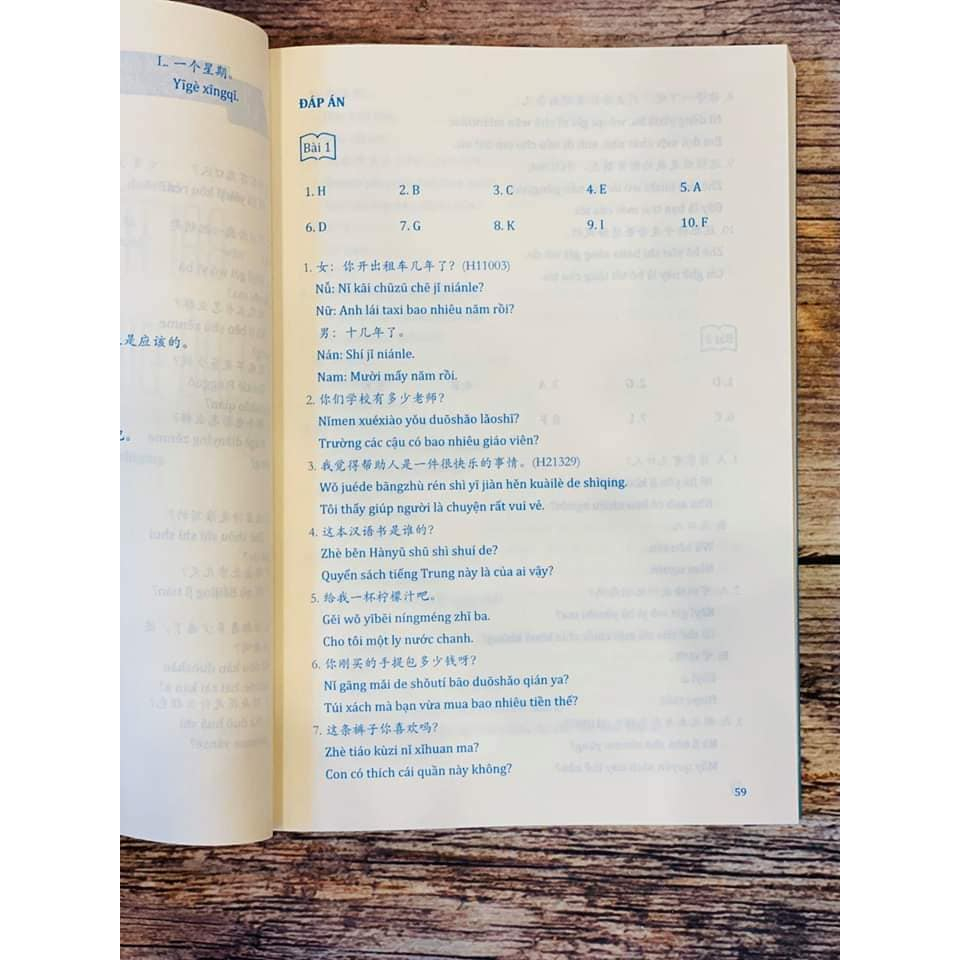 L. 一个星期。
Yīgè xīngqī.
是应该的。
ĐÁP ÁN
Bài 1
1. H 2. B 3. C 4. E 5. A
6. D 7. G 8. K 9. I 10. F
1. 女：你开出租车几年了？(H11003)
Nǚ: Nǐ kāi chūzū chē jǐ niánle?
Nữ: Anh lái taxi bao nhiêu năm rồi?
男：十几年了。
Nán: Shí jǐ niánle.
Nam: Mười mấy năm rồi.
2. 你们学校有多少老师？
Nǐmen xuéxiào yǒu duōshǎo lǎoshī?
Trường các cậu có bao nhiêu giáo viên?
3. 我觉得帮助人是一件很快乐的事情。(H21329)
Wǒ juéde bāngzhù rén shì yī jiàn hěn kuàilè de shìqing.
Tôi thấy giúp người là chuyện rất vui vẻ.
4. 这本汉语书是谁的？
Zhè běn Hànyǔ shū shì shuí de?
Quyển sách tiếng Trung này là của ai vậy?
5. 给我一杯柠檬汁吧。
Gěi wǒ yībēi níngméng zhī ba.
Cho tôi một ly nước chanh.
6. 你刚买的手提包多少钱呀？
Nǐ gāng mǎi de shǒutí bāo duōshǎo qián ya?
Túi xách mà bạn vừa mua bao nhiêu tiền thế?
7. 这条裤子你喜欢吗？
Zhè tiáo kùzi nǐ xǐhuan ma?
Con có thích cái quần này không?
59